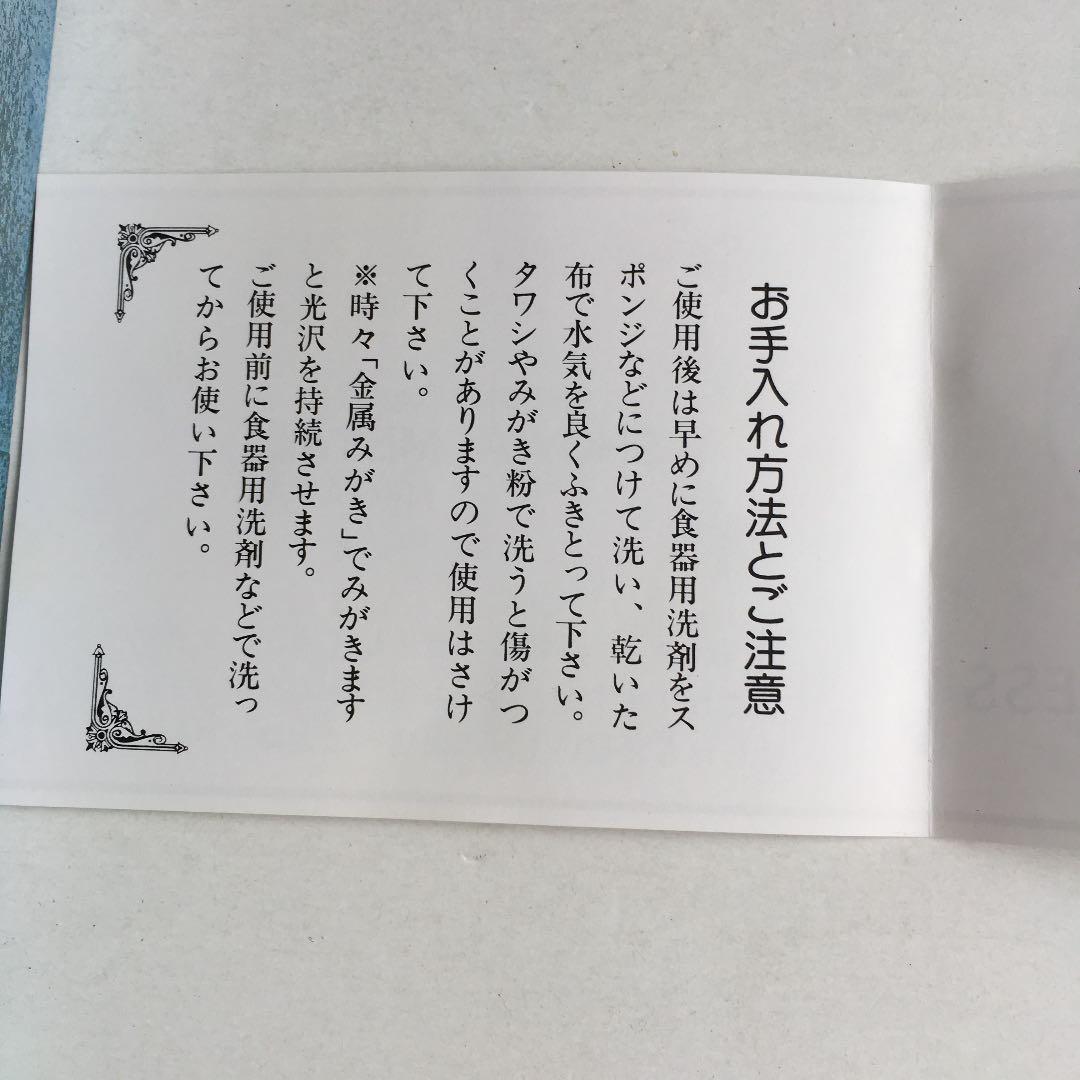 お手入れ方法とご注意
ご使用後は早めに食器用洗剤をス
ポンジなどにつけて洗い、乾いた
布で水気を良くふきとって下さい。
タワシやみがき粉で洗うと傷がつ
くことがありますので使用はさけ
て下さい。
※時々「金属みがき」でみがきます
と光沢を持続させます。
ご使用前に食器用洗剤などで洗っ
てからお使い下さい。